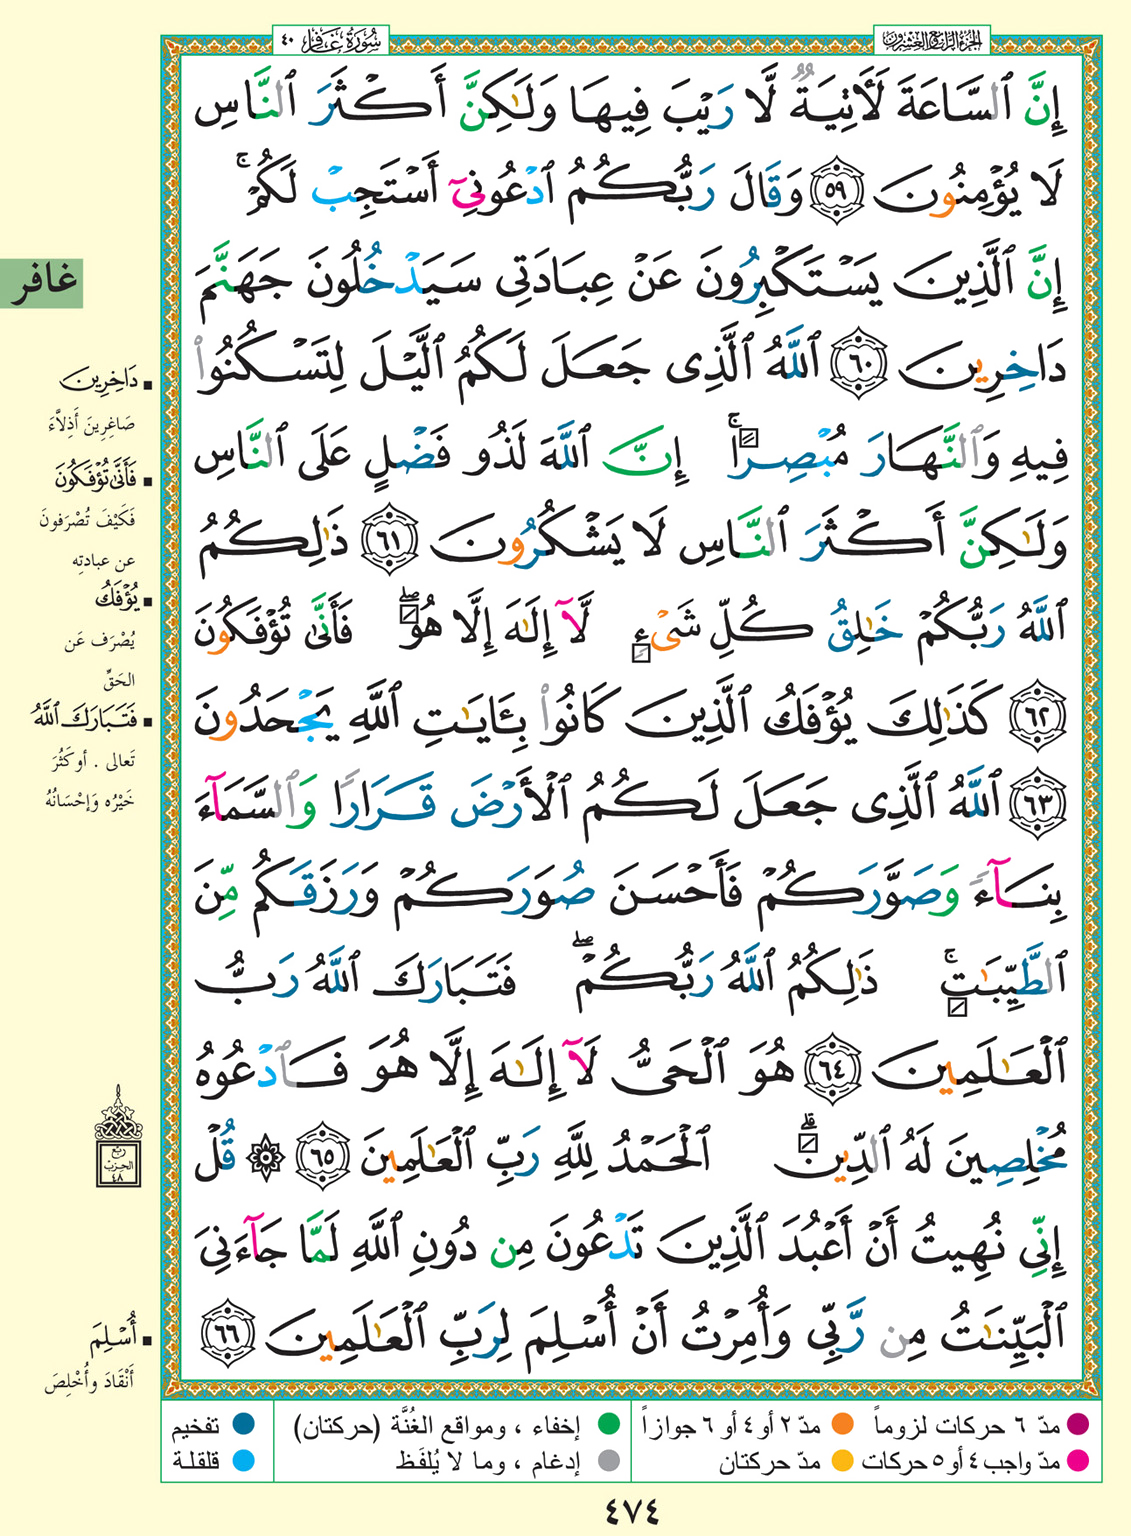 سُورَةُ غَافِر ٤٠
الجزء الرابع والعشرون
إِنَّ ٱلسَّاعَةَ لَأٓتِيَةٌ لَّا رَيْبَ فِيهَا وَلَٰكِنَّ أَكْثَرَ ٱلنَّاسِ
لَا يُؤْمِنُونَ ٥٩ وَقَالَ رَبُّكُمُ ٱدْعُونِىٓ أَسْتَجِبْ لَكُمْ ۚ
إِنَّ ٱلَّذِينَ يَسْتَكْبِرُونَ عَنْ عِبَادَتِى سَيَدْخُلُونَ جَهَنَّمَ
دَاخِرِينَ ٦٠ ٱللَّهُ ٱلَّذِى جَعَلَ لَكُمُ ٱلَّيْلَ لِتَسْكُنُوا۟
فِيهِ وَٱلنَّهَارَ مُبْصِرًا ۚ إِنَّ ٱللَّهَ لَذُو فَضْلٍ عَلَى ٱلنَّاسِ
وَلَٰكِنَّ أَكْثَرَ ٱلنَّاسِ لَا يَشْكُرُونَ ٦١ ذَٰلِكُمُ
ٱللَّهُ رَبُّكُمْ خَٰلِقُ كُلِّ شَىْءٍ لَّآ إِلَٰهَ إِلَّا هُوَ ۖ فَأَنَّىٰ تُؤْفَكُونَ
٦٢ كَذَٰلِكَ يُؤْفَكُ ٱلَّذِينَ كَانُوا۟ بِـَٔايَٰتِ ٱللَّهِ يَجْحَدُونَ
٦٣ ٱللَّهُ ٱلَّذِى جَعَلَ لَكُمُ ٱلْأَرْضَ قَرَارًا وَٱلسَّمَآءَ
بِنَآءً وَصَوَّرَكُمْ فَأَحْسَنَ صُوَرَكُمْ وَرَزَقَكُم مِّنَ
ٱلطَّيِّبَٰتِ ۚ ذَٰلِكُمُ ٱللَّهُ رَبُّكُمْ ۖ فَتَبَارَكَ ٱللَّهُ رَبُّ
ٱلْعَٰلَمِينَ ٦٤ هُوَ ٱلْحَىُّ لَآ إِلَٰهَ إِلَّا هُوَ فَٱدْعُوهُ
مُخْلِصِينَ لَهُ ٱلدِّينَ ۗ ٱلْحَمْدُ لِلَّهِ رَبِّ ٱلْعَٰلَمِينَ ٦٥ ۞ قُلْ
إِنِّى نُهِيتُ أَنْ أَعْبُدَ ٱلَّذِينَ تَدْعُونَ مِن دُونِ ٱللَّهِ لَمَّا جَآءَنِىَ
ٱلْبَيِّنَٰتُ مِن رَّبِّى وَأُمِرْتُ أَنْ أُسْلِمَ لِرَبِّ ٱلْعَٰلَمِينَ ٦٦
غافر
■ دَاخِرِينَ
صَاغِرِينَ أَذِلَّاءَ
■ فَأَنَّىٰ تُؤْفَكُونَ
فَكَيْفَ تُصْرَفونَ
عن عبادتِه
■ يُؤْفَكُ
يُصْرَف عَن
الحَقِّ
■ فَتَبَارَكَ ٱللَّهُ
تَعالى . أو كَثُرَ
خَيْرُه وَإحْسَانُهُ
ربع
الحزب
٤٨
■ أُسْلِمَ
أَنْقَادَ وأُخْلِصَ
مدّ ٦ حركات لزوماً مدّ ٢ أو ٤ أو ٦ جوازاً إخفاء ، ومواقع الغُنَّة (حركتان) تفخيم
مدّ واجب ٤ أو ٥ حركات مدّ حركتان إدغام ، وما لا يُلفَظ قلقلة
٤٧٤